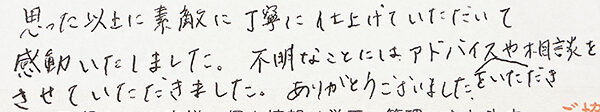 思った以上に素敵に丁寧に仕上げていただいて
感動いたしました。不明なことにはアドバイスや相談を
をいただき
させていただきました。ありがとうございました